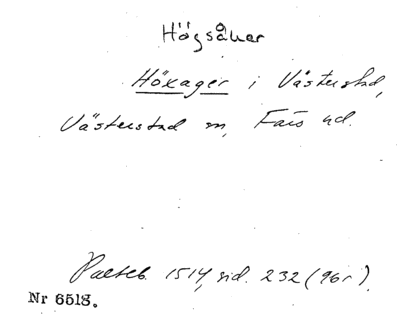 Högsåker
Höxager i Västerstad,
Västerstad sn, Färs hd.
Palteb. 1514, sid. 232 (96r).
Nr 6518.